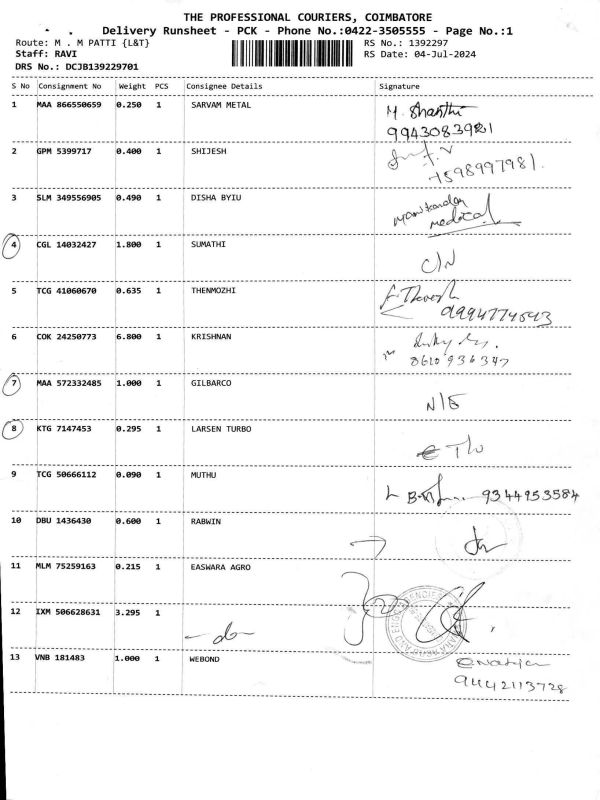 THE PROFESSIONAL COURIERS, COIMBATORE
Delivery Runsheet - PCK - Phone No.:0422-3505555 - Page No.:1
Route: M . M PATTI {L&T} RS No.: 1392297
Staff: RAVI RS Date: 04-Jul-2024
DRS No.: DCJB139229701
S No Consignment No Weight PCS Consignee Details Signature
1 MAA 866550659 0.250 1 SARVAM METAL M. Shanthi
9943083921
2 GPM 5399717 0.400 1 SHIJESH
7598997981.
3 SLM 349556905 0.490 1 DISHA BYIU Manikandan
medical
4 CGL 14032427 1.800 1 SUMATHI C/N
5 TCG 41060670 0.635 1 THENMOZHI
9994774543
6 COK 24250773 6.800 1 KRISHNAN
8610936347
7 MAA 572332485 1.000 1 GILBARCO N/E
8 KTG 7147453 0.295 1 LARSEN TURBO
9 TCG 50666112 0.090 1 MUTHU 9344953584
10 DBU 1436430 0.600 1 RABWIN
11 MLM 75259163 0.215 1 EASWARA AGRO
12 IXM 506628631 3.295 1 -do-
13 VNB 181483 1.000 1 WEBOND
9442113728